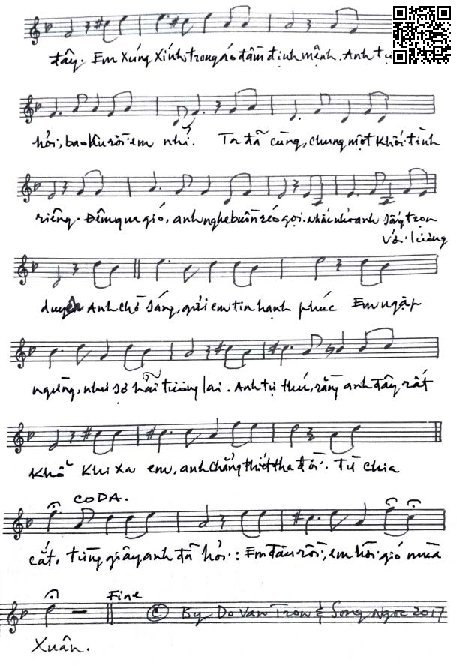 đây. Em xúng xính trong áo đầm định mệnh. Anh tự
hỏi, ba-Ku rồi em nhỉ. Ta đã cùng, chung một khối tình
riêng. Đêm qua gió, anh nghe buồn réo gọi. Nhắc nhở anh
duyên Anh chờ sáng, gửi em tin hạnh phúc Em ngập
ngừng, như sợ hãi tương lai. Anh tự thú, rằng anh đây, rất
khổ Khi xa em, anh chẳng thiết tha đời. Từ chia
CODA.
cắt, từng giây anh đã hỏi: Em đâu rồi, em hỡi gió mùa
Fine
© By Do Van Tron & Song Ngoc 2017
Xuân.